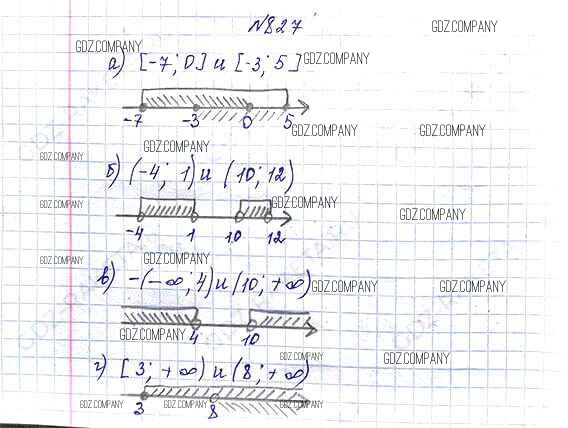 №827
GDZ.COMPANY
GDZ.COMPANY
а) [-7; 0] и [-3; 5]
GDZ.COMPANY
-7 -3 0 5
GDZ.COMPANY
GDZ.COMPANY
GDZ.COMPANY
GDZ.COMPANY
б) (-4; 1) и (10; 12)
GDZ.COMPANY
GDZ.COMPANY
GDZ.COMPANY
-4 1 10 12
GDZ.COMPANY
GDZ.COMPANY
в) -(-∞; 4) и (10; +∞)
GDZ.COMPANY
GDZ.COMPANY
GDZ.COMPANY
4 10
GDZ.COMPANY
GDZ.COMPANY
г) [3; +∞) и (8; +∞)
GDZ.COMPANY
GDZ.COMPANY
GDZ.COMPANY
3 8